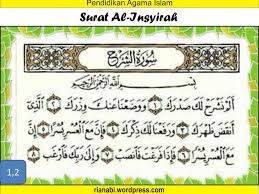 Pendidikan Agama Islam
Surat Al-Insyirah
سُورَةُ الشَّرْحِ
بِسْمِ اللَّهِ الرَّحْمَٰنِ الرَّحِيمِ
أَلَمْ نَشْرَحْ لَكَ صَدْرَكَ ١ وَوَضَعْنَا عَنْكَ وِزْرَكَ ٢ الَّذِي
أَنْقَضَ ظَهْرَكَ ٣ وَرَفَعْنَا لَكَ ذِكْرَكَ ٤ فَإِنَّ مَعَ الْعُسْرِ يُسْرًا ٥ إِنَّ
مَعَ الْعُسْرِ يُسْرًا ٦ فَإِذَا فَرَغْتَ فَانْصَبْ ٧ وَإِلَىٰ رَبِّكَ فَارْغَبْ ٨
1,2
rianabi.wordpress.com